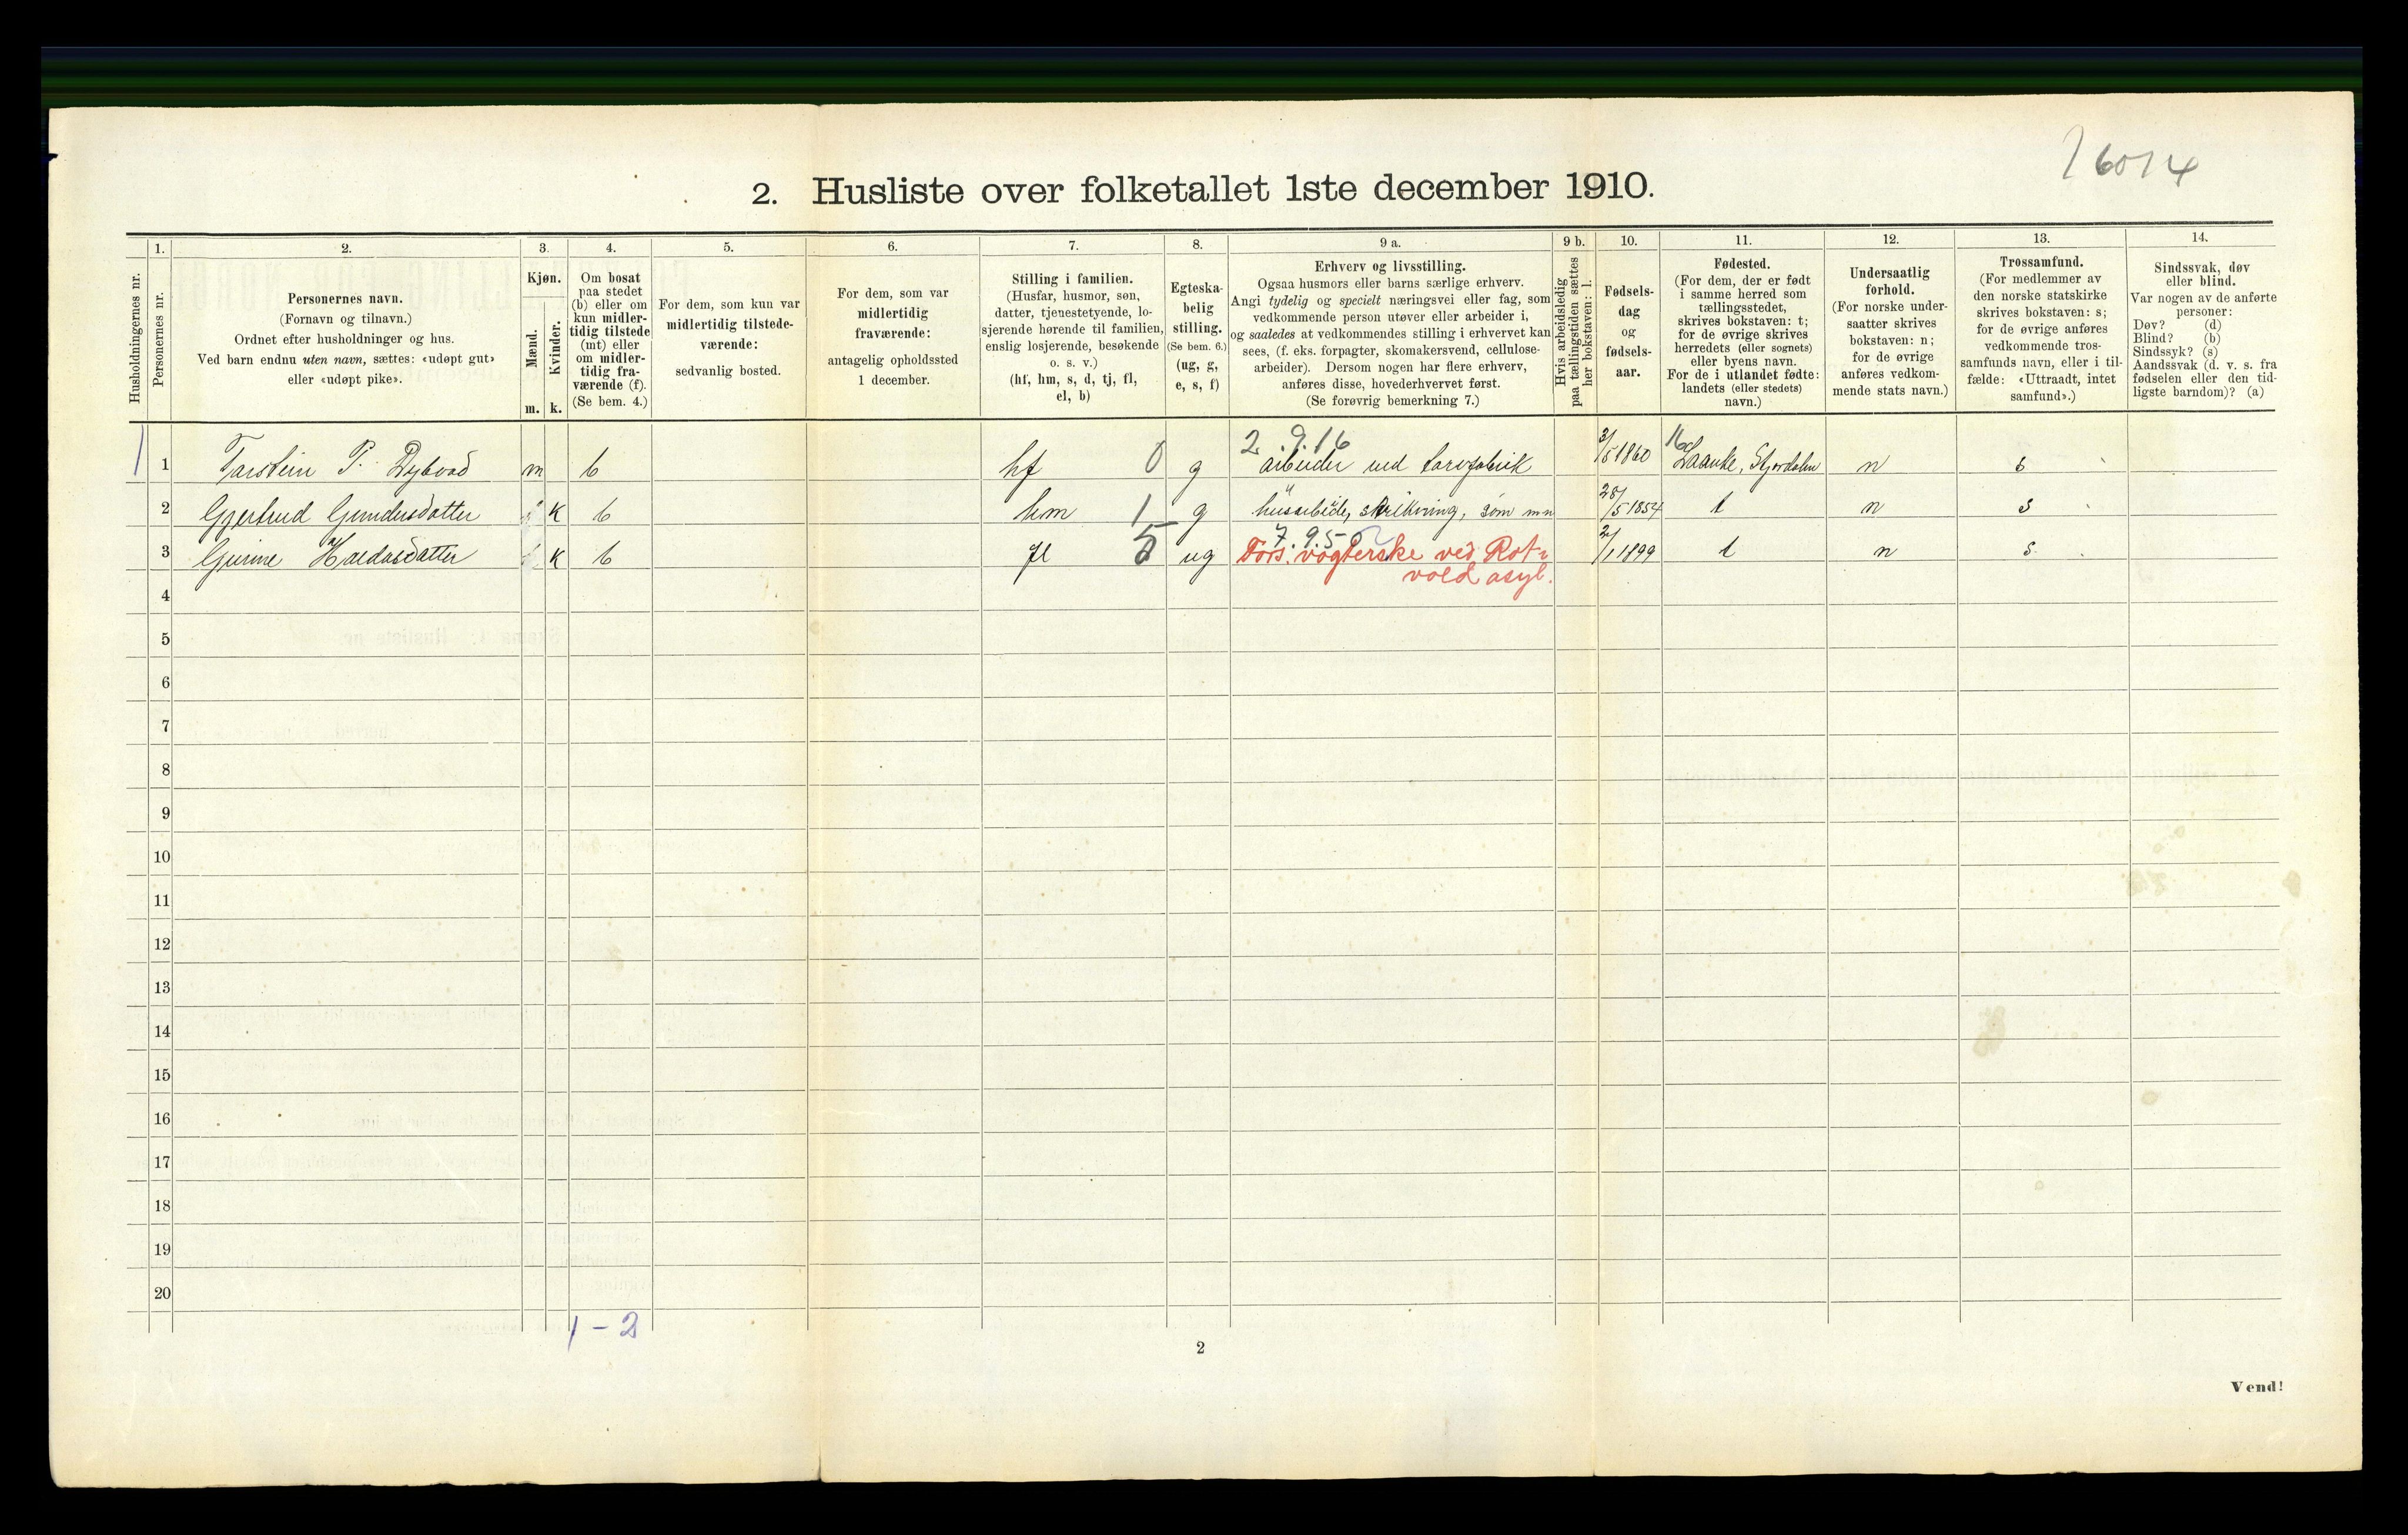 16014
2. Husliste over folketallet 1ste december 1910.
Husholdningernes nr.
1.
Personernes nr.
2.
Personernes navn.
(Fornavn og tilnavn.)
Ordnet efter husholdninger og hus.
Ved barn endnu uten navn, sættes: «udøpt gut»
eller «udøpt pike».
3.
Kjøn.
Mænd.
m.
Kvinder.
k.
4.
Om bosat
paa stedet
(b) eller om
kun midler-
tidig tilstede
(mt) eller
om midler-
tidig fra-
værende (f).
(Se bem. 4.)
5.
For dem, som kun var
midlertidig tilstede-
værende:
sedvanlig bosted.
6.
For dem, som var
midlertidig
fraværende:
antagelig opholdssted
1 december.
7.
Stilling i familien.
(Husfar, husmor, søn,
datter, tjenestetyende, lo-
sjerende hørende til familien,
enslig losjerende, besøkende
o. s. v.)
(hf, hm, s, d, tj, fl,
el, b)
8.
Egteska-
belig
stilling.
(Se bem. 6.)
(ug, g,
e, s, f)
9 a.
Erhverv og livsstilling.
Ogsaa husmors eller barns særlige erhverv.
Angi tydelig og specielt næringsvei eller fag, som
vedkommende person utøver eller arbeider i,
og saaledes at vedkommendes stilling i erhvervet kan
sees, (f. eks. forpagter, skomakersvend, cellulose-
arbeider). Dersom nogen har flere erhverv,
anføres disse, hovederhvervet først.
(Se forøvrig bemerkning 7.)
9 b.
Hvis arbeidsledig
paa tællingstiden sættes
her bokstaven: l.
10.
Fødsels-
dag
og
fødsels-
aar.
11.
Fødested.
(For dem, der er født
i samme herred som
tællingsstedet,
skrives bokstaven: t;
for de øvrige skrives
herredets (eller sognets)
eller byens navn.
For de i utlandet fødte:
landets (eller stedets)
navn.)
12.
Undersaatlig
forhold.
(For norske under-
saatter skrives
bokstaven: n;
for de øvrige
anføres vedkom-
mende stats navn.)
13.
Trossamfund.
(For medlemmer av
den norske statskirke
skrives bokstaven: s;
for de øvrige anføres
vedkommende tros-
samfunds navn, eller i til-
fælde: «Uttraadt, intet
samfund».)
14.
Sindssvak, døv
eller blind.
Var nogen av de anførte
personer:
Døv? (d)
Blind? (b)
Sindssyk? (s)
Aandssvak (d. v. s. fra
fødselen eller den tid-
ligste barndom)? (a)
2.9.16 16
1 1 Tarstein P. Dybvad m b hf 0 g arbeider ved 3/5 1860 Laanke, Stjørdalen n s
2 Gjertrud Gundersdatter k b hm 1 g husarbeide, strikning, som m n 28/5 1854 t n s
7.9.5
3 Gurine Haldasdatter k b fl 5 ug Fors. vogterske ved Rot- 2/1 1899 t n s
vold asyl.
4
5
6
7
8
9
10
11
12
13
14
15
16
17
18
19
20
1 - 2
2
Vend!